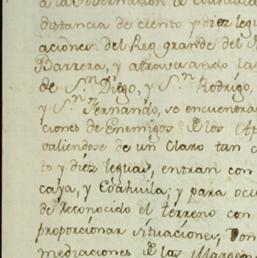 a la Governacion de Coahuila
distancia de ciento y diez legu
aciones del Rio grande del N
Barrera, y atravesando las
de S.n Diego, y S.n Rodrigo,
y S.n Fernando, se encuentra
ciones de Enemigos de los Ap
valiendose de un Claro tan c
to y diez leguas, entran con
caya, y Coahuila; y para ocu
de reconocido el terreno con
proporcionar situaciones, Don
mediaciones de los Margen